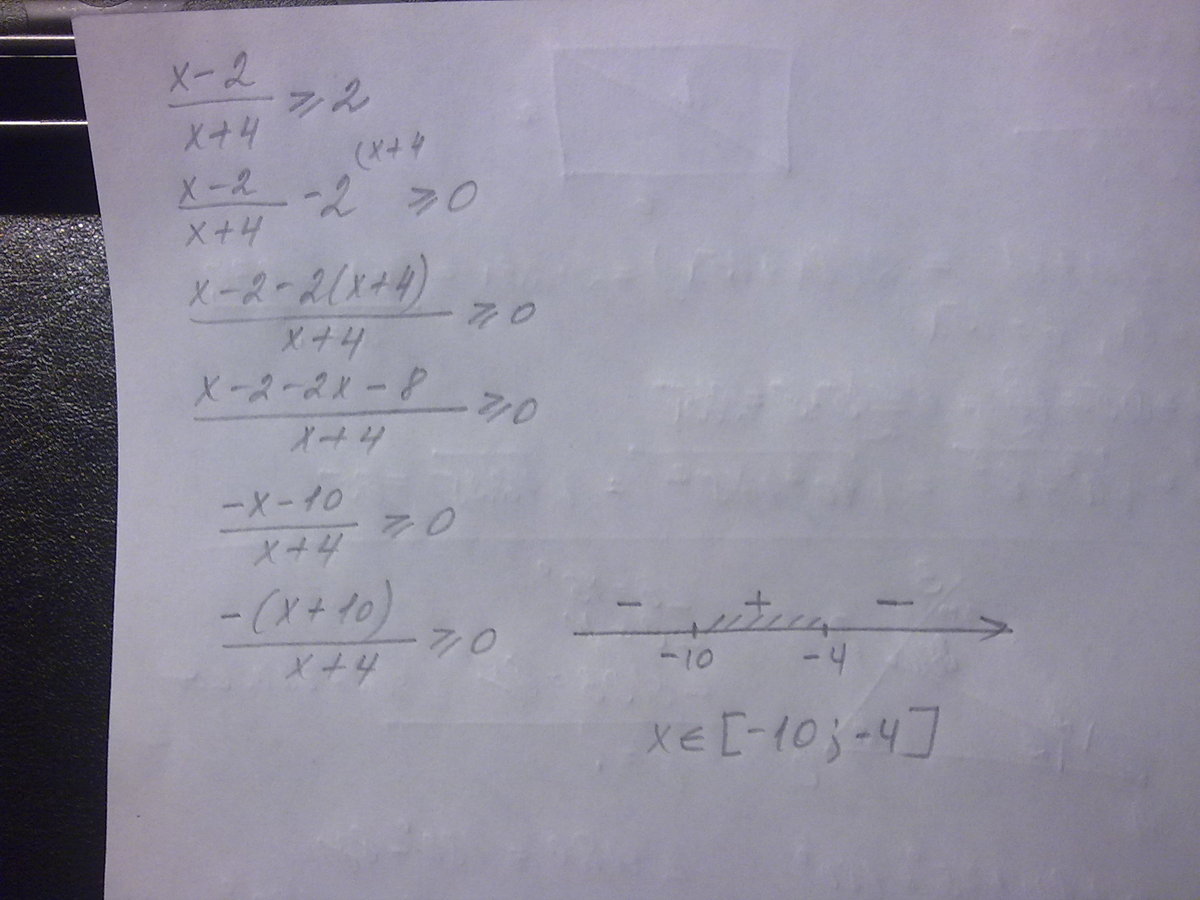 x-2/x+4 ≥ 2
x-2/x+4 -2 (x+4 ≥ 0
x-2-2(x+4)/x+4 ≥ 0
x-2-2x-8/x+4 ≥ 0
-x-10/x+4 ≥ 0
-(x+10)/x+4 ≥ 0
- + -
-10 -4
x ∈ [-10; -4]